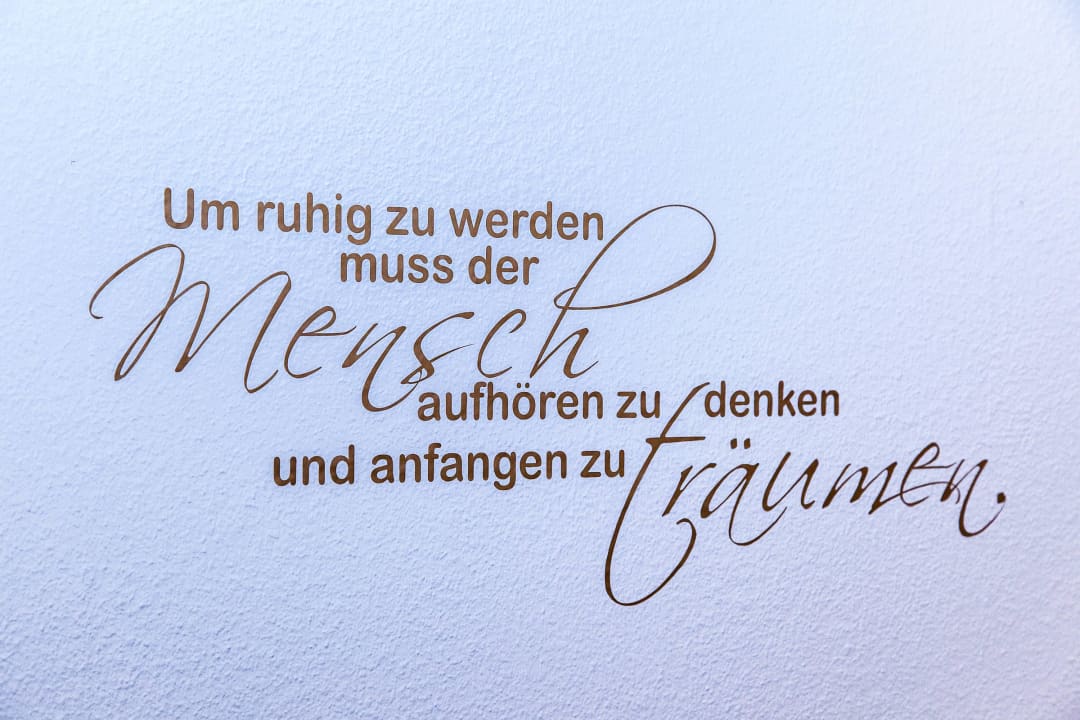 Um ruhig zu werden
muss der
Mensch
aufhören zu denken
und anfangen zu träumen.